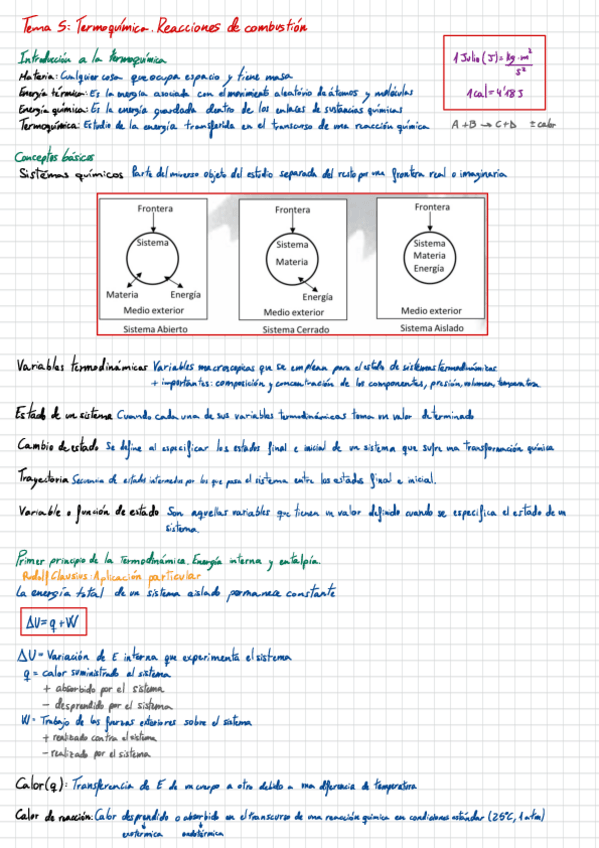 Tema 5: Termoquímica. Reacciones de combustión
Introducción a la termoquímica
1 Julio (J) = kg·m² / s²
1 cal = 4'18 J
Materia: Cualquier cosa que ocupa espacio y tiene masa
Energía térmica: Es la energía asociada con el movimiento aleatorio de átomos y moléculas
Energía química: Es la energía guardada dentro de los enlaces de sustancias químicas
Termoquímica: Estudio de la energía transferida en el transcurso de una reacción química A + B → C + D ± calor
Conceptos básicos
Sistemas químicos Parte del universo objeto del estudio separada del resto por una frontera real o imaginaria
Frontera
Sistema
Materia
Energía
Medio exterior
Sistema Abierto
Frontera
Sistema
Materia
Energía
Medio exterior
Sistema Cerrado
Frontera
Sistema
Materia
Energía
Medio exterior
Sistema Aislado
Variables termodinámicas Variables macroscópicas que se emplean para el estudio de sistemas termodinámicos
+ importantes: composición y concentración de los componentes, presión, volumen, temperatura
Estado de un sistema Cuando cada una de sus variables termodinámicas toma un valor determinado
Cambio de estado Se define al especificar los estados final e inicial de un sistema que sufre una transformación química
Trayectoria Secuencia de estados intermedios por los que pasa el sistema entre los estados final e inicial.
Variable o función de estado Son aquellas variables que tienen un valor definido cuando se especifica el estado de un
sistema.
Primer principio de la Termodinámica. Energía interna y entalpía.
Rudolf Clausius: Aplicación particular
La energía total de un sistema aislado permanece constante
ΔU = q + W
ΔU = Variación de E interna que experimenta el sistema
q = calor suministrado al sistema
+ absorbido por el sistema
- desprendido por el sistema
W = Trabajo de las fuerzas exteriores sobre el sistema
+ realizado contra el sistema
- realizado por el sistema
Calor (q): Transferencia de E de un cuerpo a otro debido a una diferencia de temperatura
Calor de reacción: Calor desprendido o absorbido en el transcurso de una reacción química en condiciones estándar (25ºC, 1 atm)
exotérmica endotérmica